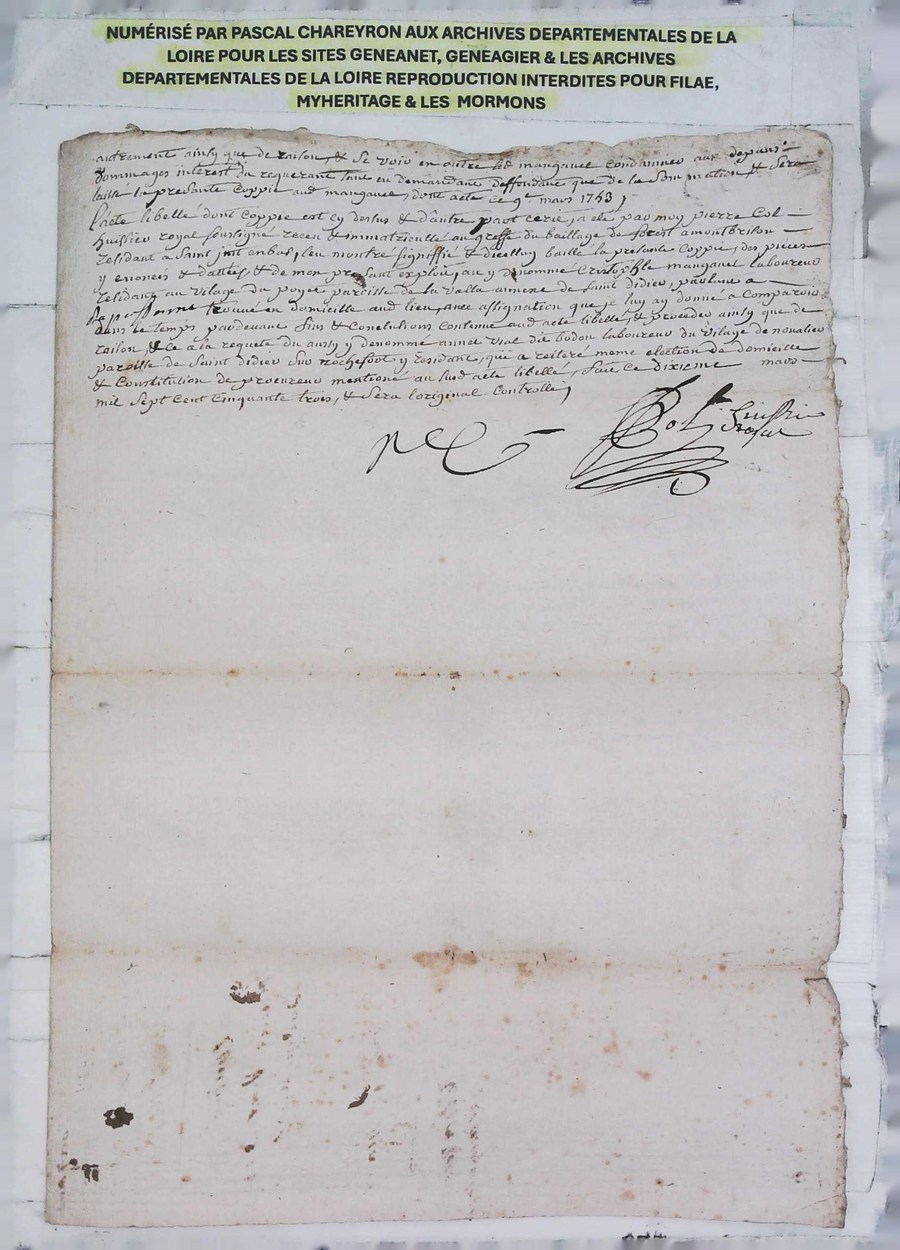 NUMÉRISÉ PAR PASCAL CHAREYRON AUX ARCHIVES DEPARTEMENTALES DE LA
LOIRE POUR LES SITES GENEANET, GENEAGIER & LES ARCHIVES
DEPARTEMENTALES DE LA LOIRE REPRODUCTION INTERDITES POUR FILAE,
MYHERITAGE & LES MORMONS
autrement ainsy que de raison, & se voir en outre led mangavel condamner aux depans
dommages interest du requerant tant en demandant deffendant que de la sommation & sera
laissé le presente coppie aud mangavel, dont acte ce 9e mars 1753
l'acte libellé dont coppie est cy dessus & d'autre part certiffié a été par moy pierre Col
huissier royal soussigné receu & immatriculté au greffe du baillage de forest a montbrison
residant a Saint just en bas, leu montré signiffié & d'icelluy baillé la presente coppie, des pieces
y enoncés & dattés & de mon present exploit, au y denommé Cristophle mangavel laboureur
residant au vilage du poyet parroisse de la valla annexe de saint didier, parlant a
sa personne trouvé en domicille aud lieu, avec assignation que je luy ay donné a comparoir
dans le temps pardevant fins & Conclusions contenue aud acte libellé, & proceder ainsy que de
raison, & ce a la requete du aussy y denommé annet vial dit bodon laboureur du vilage de
parroisse de saint didier sur rochefort y residant, qui a reiteré meme election de domicille
& Constitution de procureur mentioné au sud acte libellé, fait ce dixieme mars
mil sept cent cinquante trois, & sera l'original controllé
Col huissier
royal